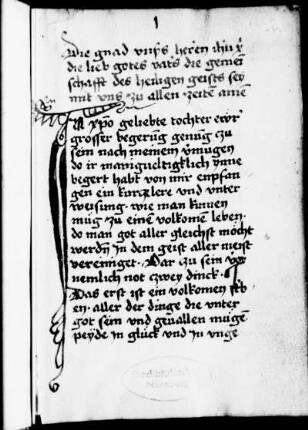 1
Die gnad vnsers herren ihu x
die lieb gotes vaters die gemein
schafft des heiligen geists sey
mit vns zu allen zeitē amē
In xpō geliebte tochter ewr
grosser begerūg genūg czu
sein nach meinem v̄mugen
do ir manigueltigklich ynne
begert habt von mir empfan
gen ein kurczlere vnd vnter
weisung wie man kūnen
mūg zu einē volkomē leben
do man got aller gleichst möcht
werdn̄ in dem geist aller meist
vereiniget Dar zu sein
nemlich not czwey dinck
Das erst ist ein volkomen
en aller der dinge die vnter
got sein vnd geuallen mugē
peyde in glück vnd in vnge
Stadtbibliothek
Nürnberg